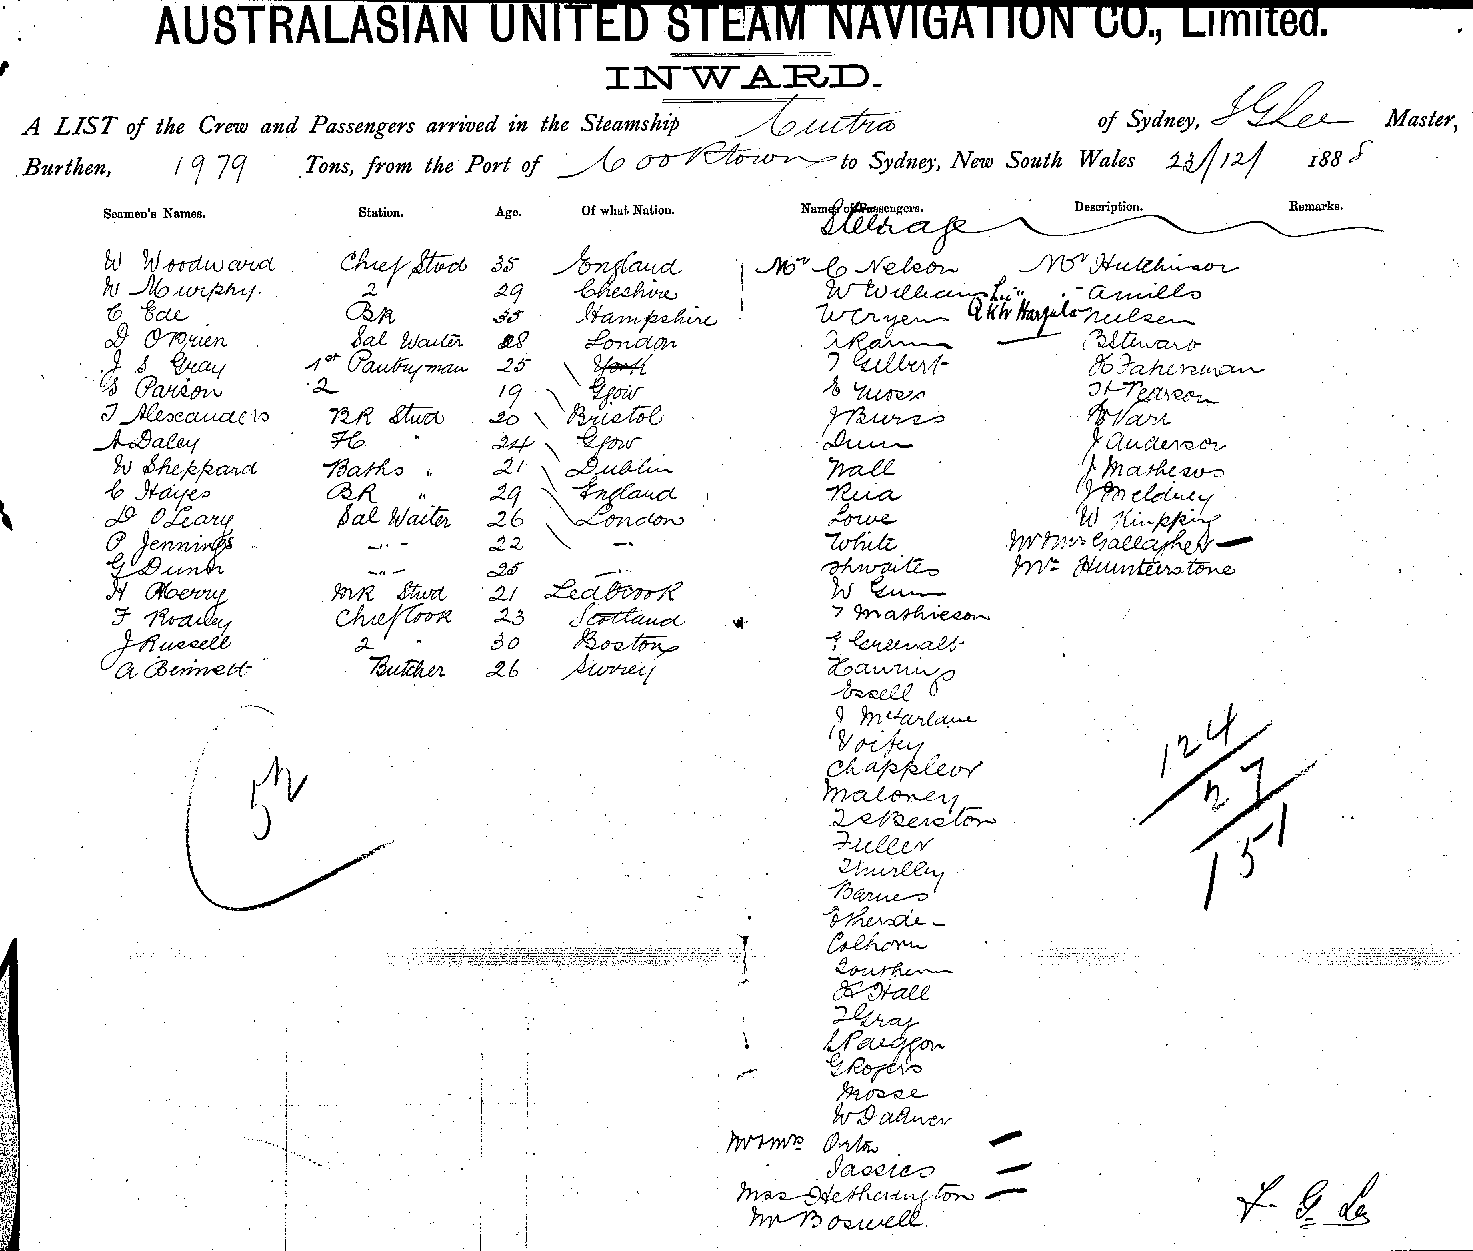 AUSTRALASIAN UNITED STEAM NAVIGATION CO., Limited.
INWARD.
A LIST of the Crew and Passengers arrived in the Steamship Cintra of Sydney, J G Lee Master,
Burthen, 1979 Tons, from the Port of Cooktown to Sydney, New South Wales 23/12/ 1888
Seamen's Names. Station. Age. Of what Nation. Names of Passengers. Description. Remarks.
Steerage
W Woodward Chief Stwd 35 England Mr C Nelson Mr Hutchinson
W Murphy. 2 29 Cheshire W Williams " Amills
C Ede BR 35 Hampshire W Cryen Neilsen
D OBrien Sal Waiter 28 London B Steward
J S Gray 1st Pantryman 25 York T Gilbert H Faherman
S Parson 2 19 Ggow E Moss H Pearson
T Alexanders BR Stwd 20 Bristol J Burss
A Daley FC " 24 Ggow Dunn J Anderson
W Sheppard Baths " 21 Dublin Wall J Mathews
C Hayes BR " 29 England Rua J Meldney
D O'Leary Sal Waiter 26 London Lowe W Kinpping
P Jennings " " 22 " White Mr & Mrs Gallagher
G Dunn " " 25 " Thwaites Mrs Hunterstone
H Merry MR Stwd 21 Ledbrook W Gunn
F Roadley Chief Cook 23 Scotland T Mathieson
J Russell 2 " 30 Boston
A Bennett Butcher 26 Surrey Hannings
Essell
J McFarlane
Chappleor
Maloney
52
124
27
151
Fuller
Thurlley
Barnes
Colhorn
Southern
H Hall
T Gray
G Rogers
Mosse
Mr & Mrs Orton
Jassies
Miss Hetherington
Mr Boswell
J. G. Lee